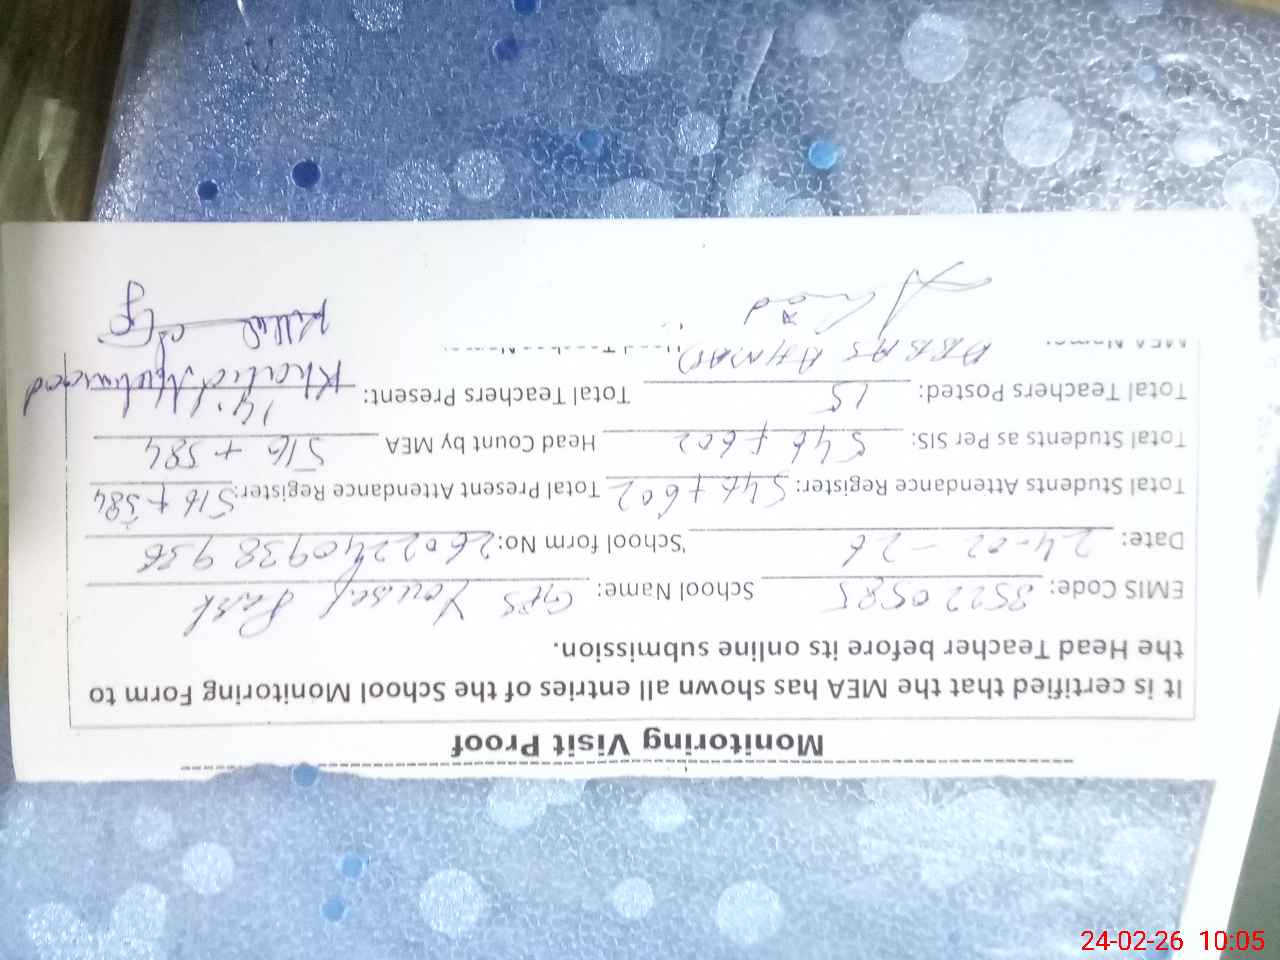 Monitoring Visit Proof
It is certified that the MEA has shown all entries of the School Monitoring Form to
the Head Teacher before its online submission.
EMIS Code: 35220585 School Name: GPS Yousaf Park
Date: 24-02-26 School form No: 2602240938956
Total Students Attendance Register: 546+602 Total Present Attendant Register: 516+584
Total Students as Per SIS: 546+602 Head Count by MEA 516+584
Total Teachers Posted: 15 Total Teachers Present: 14
MEA Name: ABBAS AHMAD Head Teacher Name: Khalid Mehmood
24-02-26 10:05